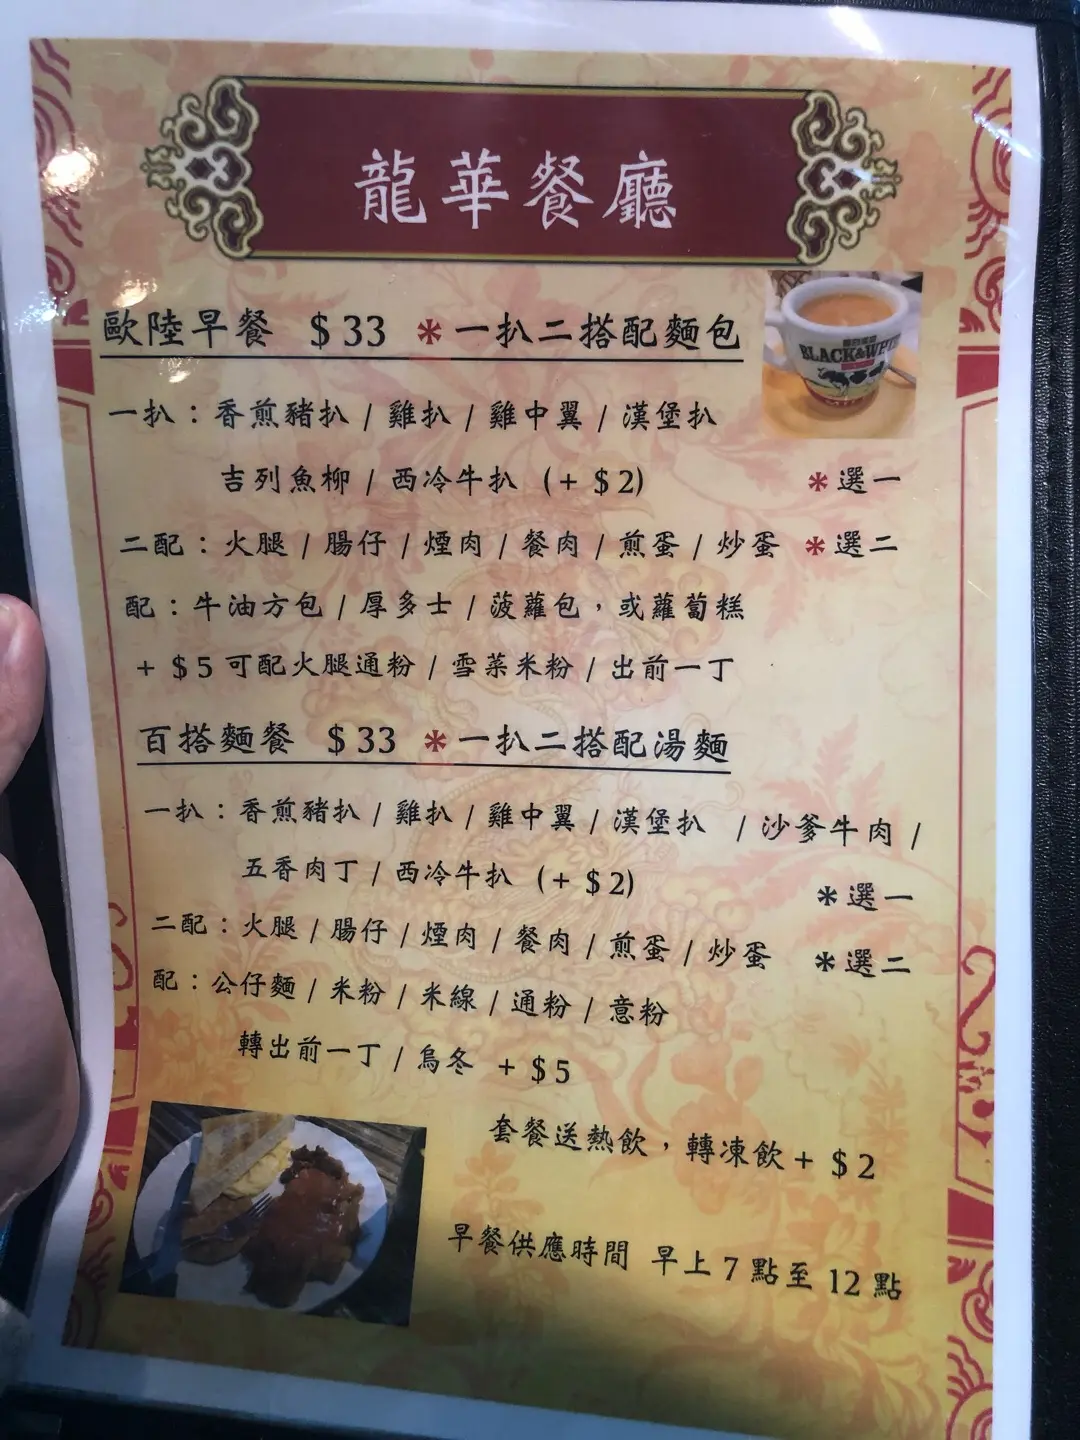 龍華餐廳
歐陸早餐 $33 *一扒二搭配麵包
BLACK&WHITE
一扒：香煎豬扒 / 雞扒 / 雞中翼 / 漢堡扒
吉列魚柳 / 西冷牛扒 (+ $2) *選一
二配：火腿 / 腸仔 / 煙肉 / 餐肉 / 煎蛋 / 炒蛋 *選二
配：牛油方包 / 厚多士 / 菠蘿包，或蘿蔔糕
+ $5 可配火腿通粉 / 雪菜米粉 / 出前一丁
百搭麵餐 $33 *一扒二搭配湯麵
一扒：香煎豬扒 / 雞扒 / 雞中翼 / 漢堡扒 / 沙爹牛肉 /
五香肉丁 / 西冷牛扒 (+ $2) *選一
二配：火腿 / 腸仔 / 煙肉 / 餐肉 / 煎蛋 / 炒蛋 *選二
配：公仔麵 / 米粉 / 米線 / 通粉 / 意粉
轉出前一丁 / 烏冬 + $5
套餐送熱飲，轉凍飲 + $2
早餐供應時間 早上 7 點至 12 點